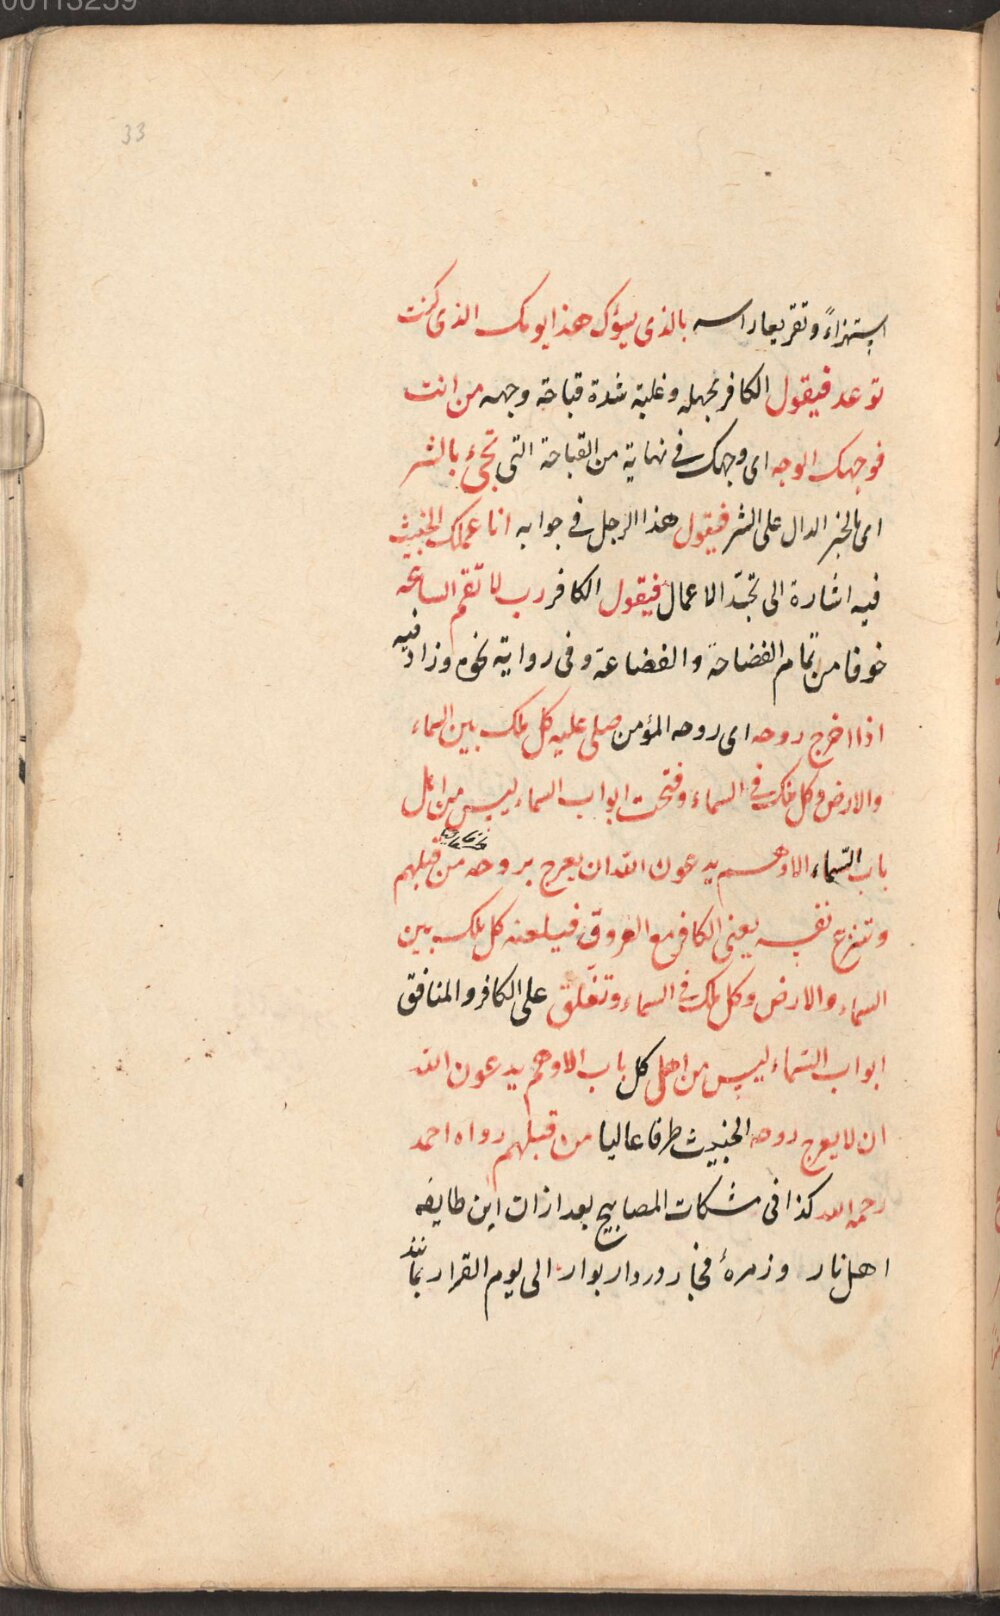 00113259
33
استهزاءً وتقريعا راسه بالذى يسؤك هذا يومك الذى كنت
توعد فيقول الكافر بجهله وغلبة شدة قباحة وجهه من انت
فوجهك الوجه اى وجهك فى نهاية من القباحة التى تجىء بالشر
اى بالخبر الدال على الشر فيقول هذا الرجل فى جوابه انا عملك الخبيث
فيه اشارة الى تجسّد الاعمال فيقول الكافر رب لا تقم الساعه
خوفا من تمام الفضاحة والفضاعة وفى رواية نحوه وزاد فيه
اذا اخرج روحه اى روحه المؤمن صلى عليه كل ملك بين السماء
والارض وكل ملك فى السماء وفتحت ابواب السماء ليس من اهل
باب السّماء الا وهم يدعون الله ان يعرج بروحه من قبلهم
وتنزع نفسه يعنى الكافر مع العروق فيلعنه كل ملك بين
السماء والارض وكل ملك فى السماء وتغلق على الكافر والمنافق
ابواب السّماء ليس من اهل كل باب الا وهم يدعون الله
ان لا يعرج روحه الخبيث طرفا عاليا من قبلهم رواه احمد
رحمه الله كذا فى مشكات المصابيح بعد ازان اين طايفه
اهل نار وزمرهٔ فجار در دار بوار الى يوم القرار بمانند